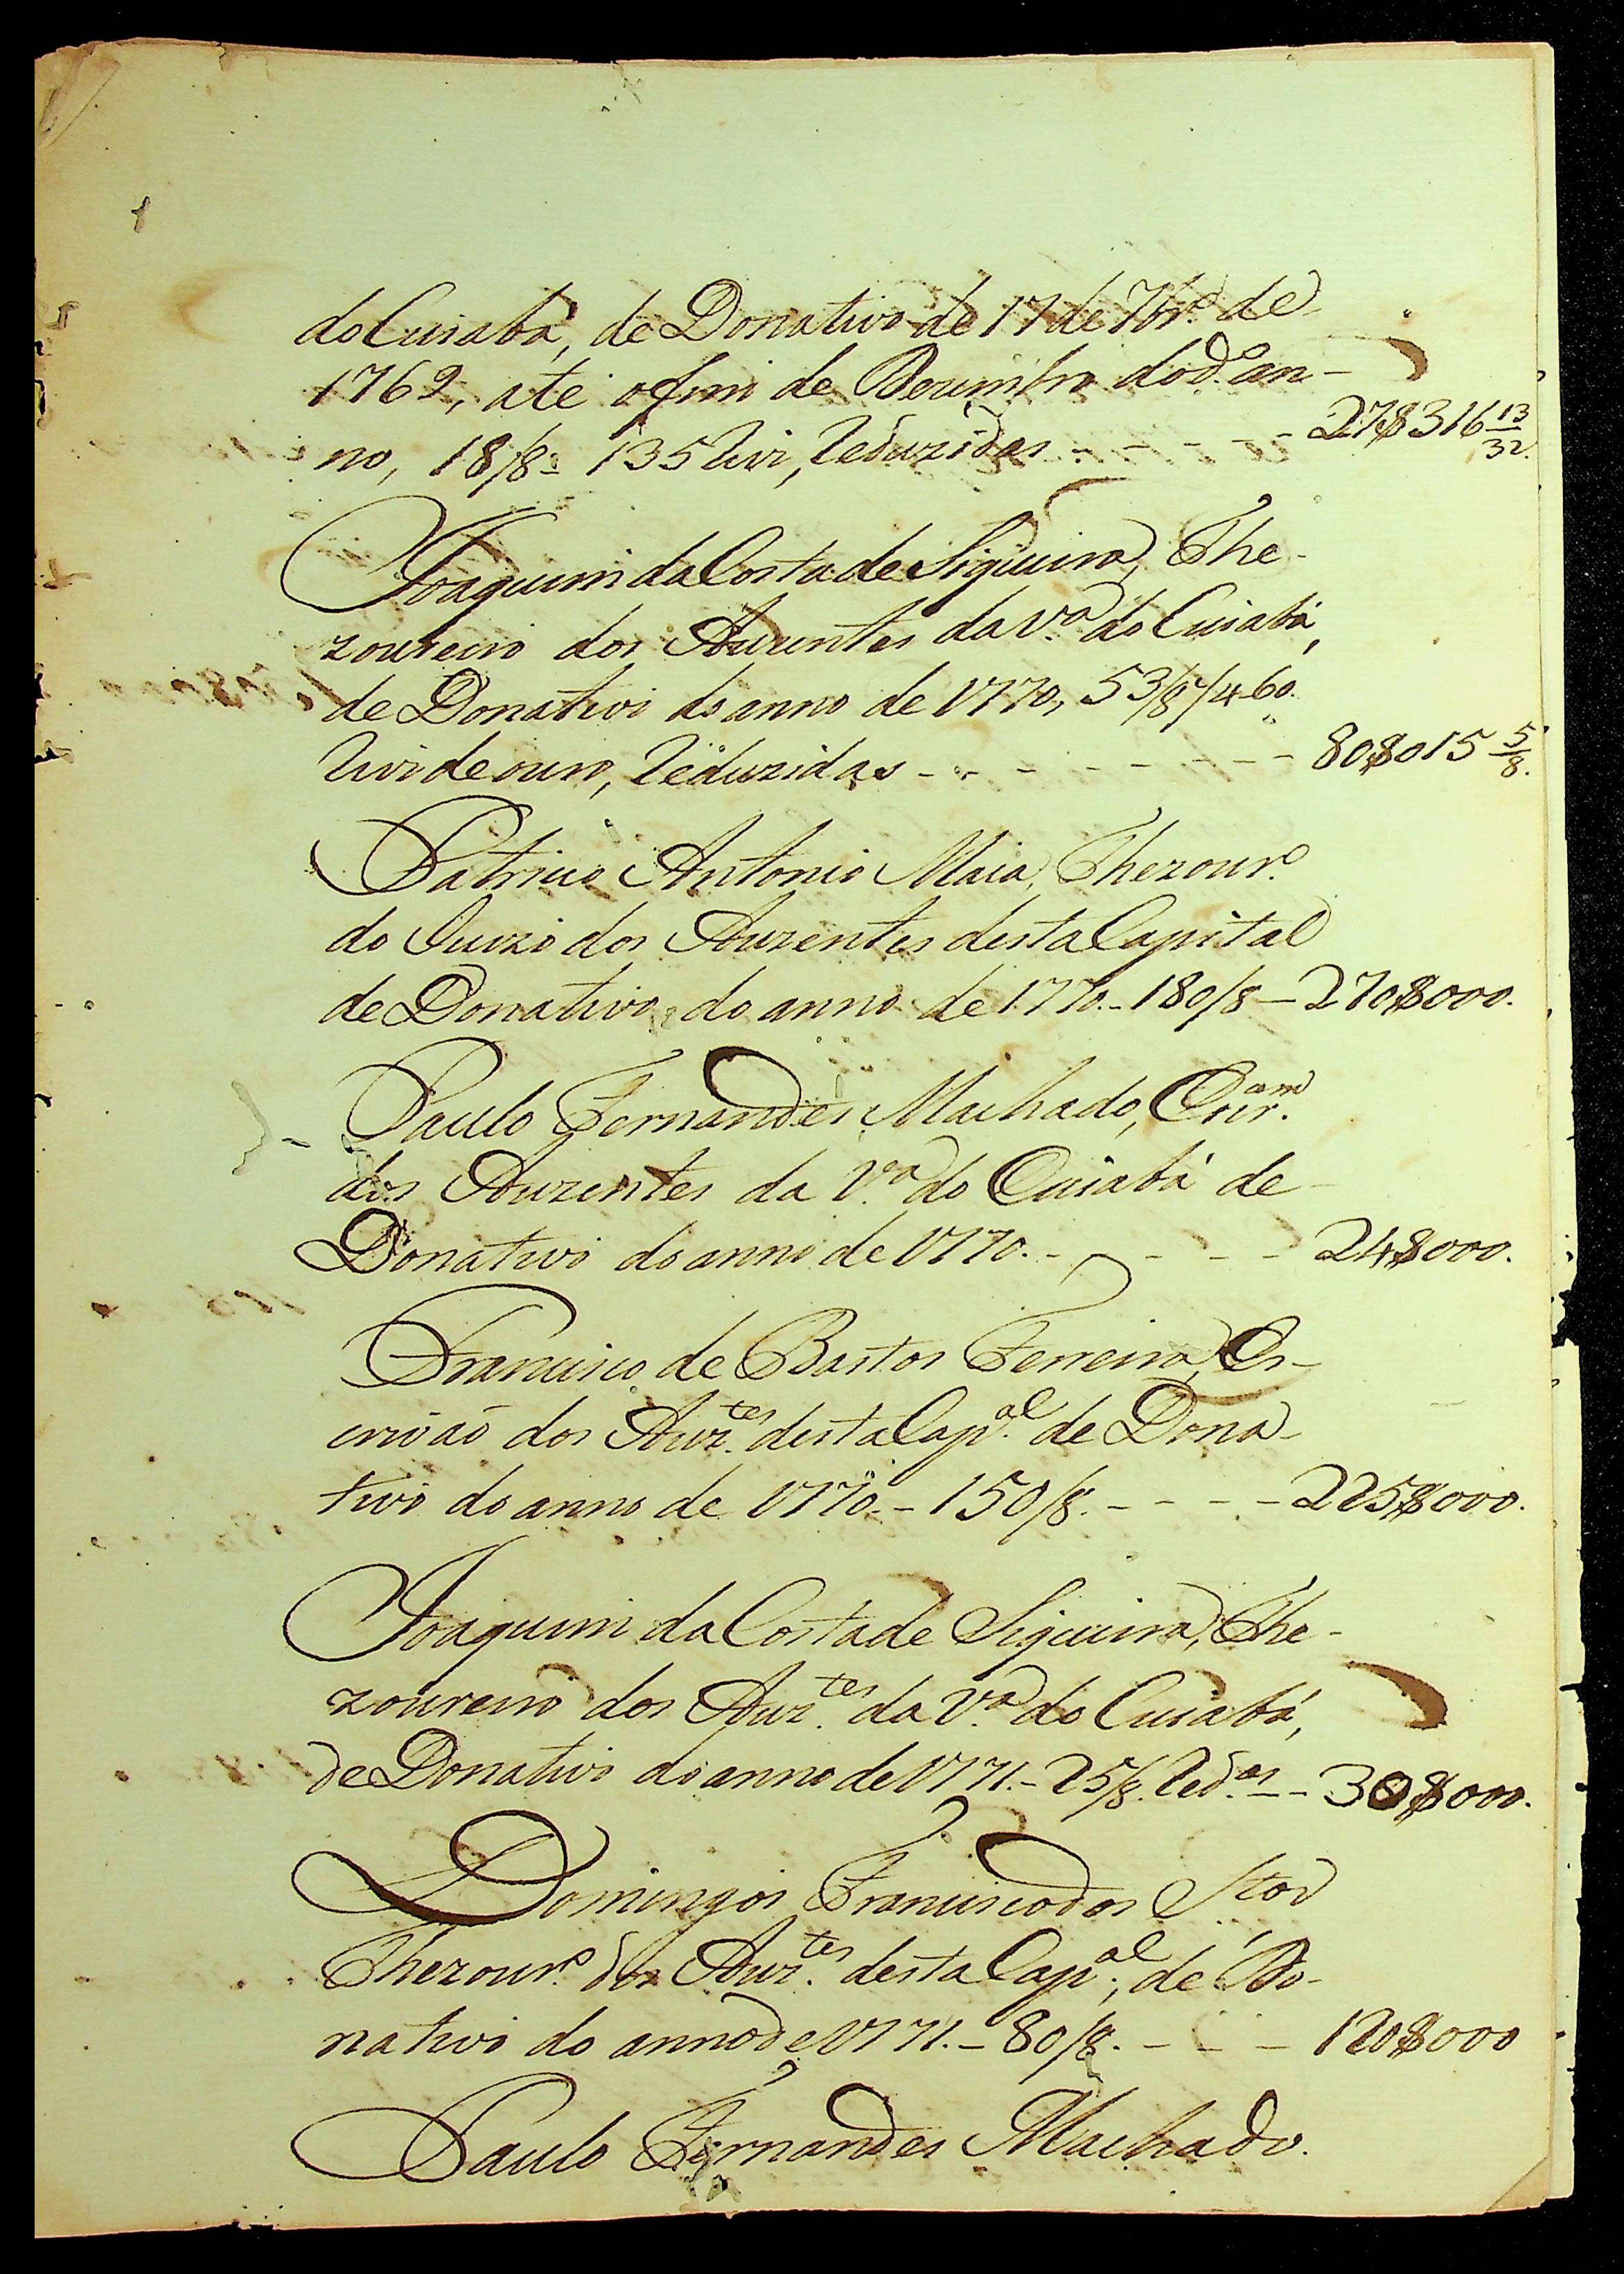 do Cuiabá, de Donativo de 17 de 7br.º de
1769, até o fim de Dezembro do d.º an-
no, 18/8.ª 135 reis, Reduzidas - - - - - 27$316 13/32.
Joaquim da Costa de Siqueira, The-
zoureiro dos Auzentes da V.ª do Cuiabá,
de Donativo do anno de 1770, 53/8 /4 60.
reis de ouro, Reduzidas - - - - - - - - - 80$015 5/8.
Patricio Antonio Maia, Thezour.º
do Juizo dos Auzentes desta Capital
de Donativo do anno de 1770. - 180/8 - 270$000.
Paulo Fernandes Machado, Escr.am
dos Auzentes da V.ª do Cuiabá de
Donativo do anno de 1770. - - - - - 24$000.
Francisco de Bastos Ferreira, Es-
crivão dos Auz.tes desta Cap.al de Dona-
tivo do anno de 1770. - 150/8. - - - - 225$000.
Joaquim da Costa de Siqueira, The-
zoureiro dos Auz.tes da V.ª do Cuiabá,
de Donativo do anno de 1771. - 25/8. Red.as - - 30$000.
Domingos Francisco dos S.tos
Thezour.º dos Auz.tes desta Cap.al, de Do-
nativo do anno de 1771. - 80/8. - - - - 120$000
Paulo Fernandes Machado.